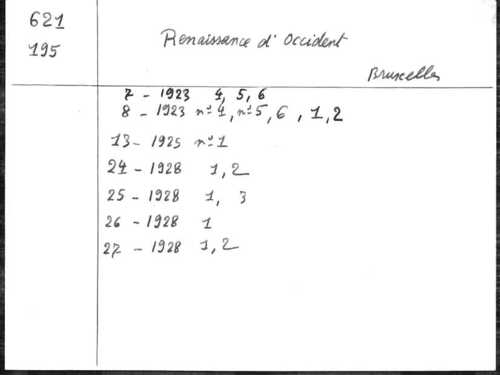 621
195
Renaissance d'Occident
Bruxelles
7 - 1923 4, 5, 6
8 - 1923 nº 4, nº 5, 6, 1, 2
13 - 1925 nº 1
24 - 1928 1, 2
25 - 1928 1, 3
26 - 1928 1
27 - 1928 1, 2